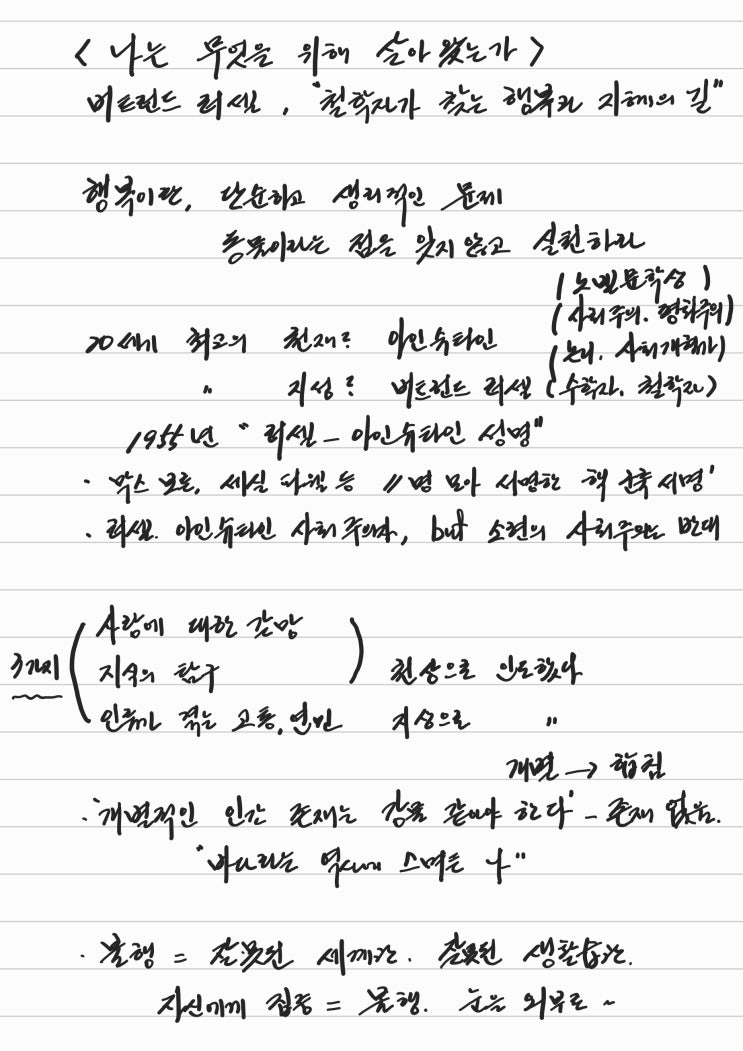 < 나는 무엇을 위해 살아 왔는가 >
버트런드 러셀, "철학자가 찾는 행복과 지혜의 길"
행복이란, 단순하고 생리적인 문제
동물이라는 점을 잊지 않고 실천하라
( 노벨문학상 )
( 사회주의. 평화주의)
20세기 최고의 천재? 아인슈타인
( 논리. 사회개혁가)
" 지성? 버트런드 러셀 (수학자. 철학자)
1955년 "러셀 - 아인슈타인 성명"
· 막스 보른, 세실 파월 등 11명 모아 서명한 핵 군축 서명'
· 러셀. 아인슈타인 사회주의자, but 소련의 사회주의는 반대
3가지
사랑에 대한 갈망
지식의 탐구 천상으로 인도했다
인류가 겪는 고통, 연민 지상으로 "
개별 → 합침
· '개별적인 인간 존재는 강물 같아야 한다' - 존재 없음.
"바다라는 역사에 스며드는 나"
· 불행 = 잘못된 세계관. 잘못된 생활습관.
자신에게 집중 = 불행. 눈을 외부로 ~